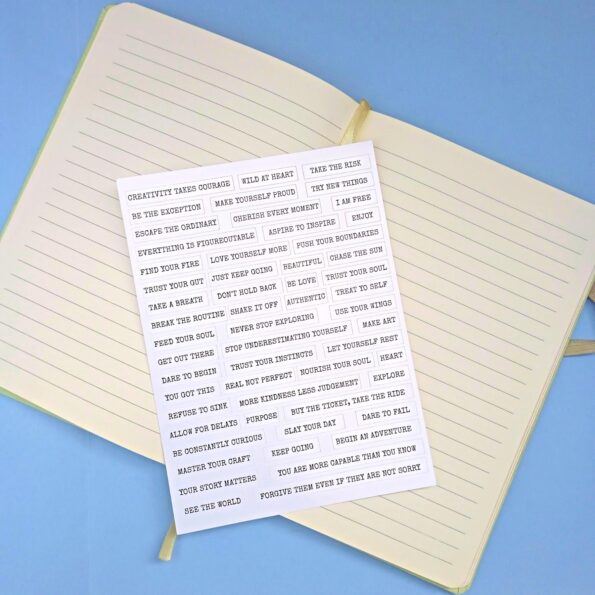 CREATIVITY TAKES COURAGE WILD AT HEART TAKE THE RISK
BE THE EXCEPTION MAKE YOURSELF PROUD TRY NEW THINGS
ESCAPE THE ORDINARY CHERISH EVERY MOMENT I AM FREE
EVERYTHING IS FIGUREOUTABLE ASPIRE TO INSPIRE ENJOY
FIND YOUR FIRE LOVE YOURSELF MORE PUSH YOUR BOUNDARIES
TRUST YOUR GUT JUST KEEP GOING BEAUTIFUL CHASE THE SUN
TAKE A BREATH DON'T HOLD BACK BE LOVE TRUST YOUR SOUL
BREAK THE ROUTINE SHAKE IT OFF AUTHENTIC TREAT TO SELF
FEED YOUR SOUL NEVER STOP EXPLORING USE YOUR WINGS
GET OUT THERE STOP UNDERESTIMATING YOURSELF MAKE ART
DARE TO BEGIN TRUST YOUR INSTINCTS LET YOURSELF REST
YOU GOT THIS REAL NOT PERFECT NOURISH YOUR SOUL HEART
REFUSE TO SINK MORE KINDNESS LESS JUDGEMENT EXPLORE
ALLOW FOR DELAYS PURPOSE BUY THE TICKET, TAKE THE RIDE
BE CONSTANTLY CURIOUS SLAY YOUR DAY DARE TO FAIL
MASTER YOUR CRAFT KEEP GOING BEGIN AN ADVENTURE
YOUR STORY MATTERS YOU ARE MORE CAPABLE THAN YOU KNOW
SEE THE WORLD FORGIVE THEM EVEN IF THEY ARE NOT SORRY